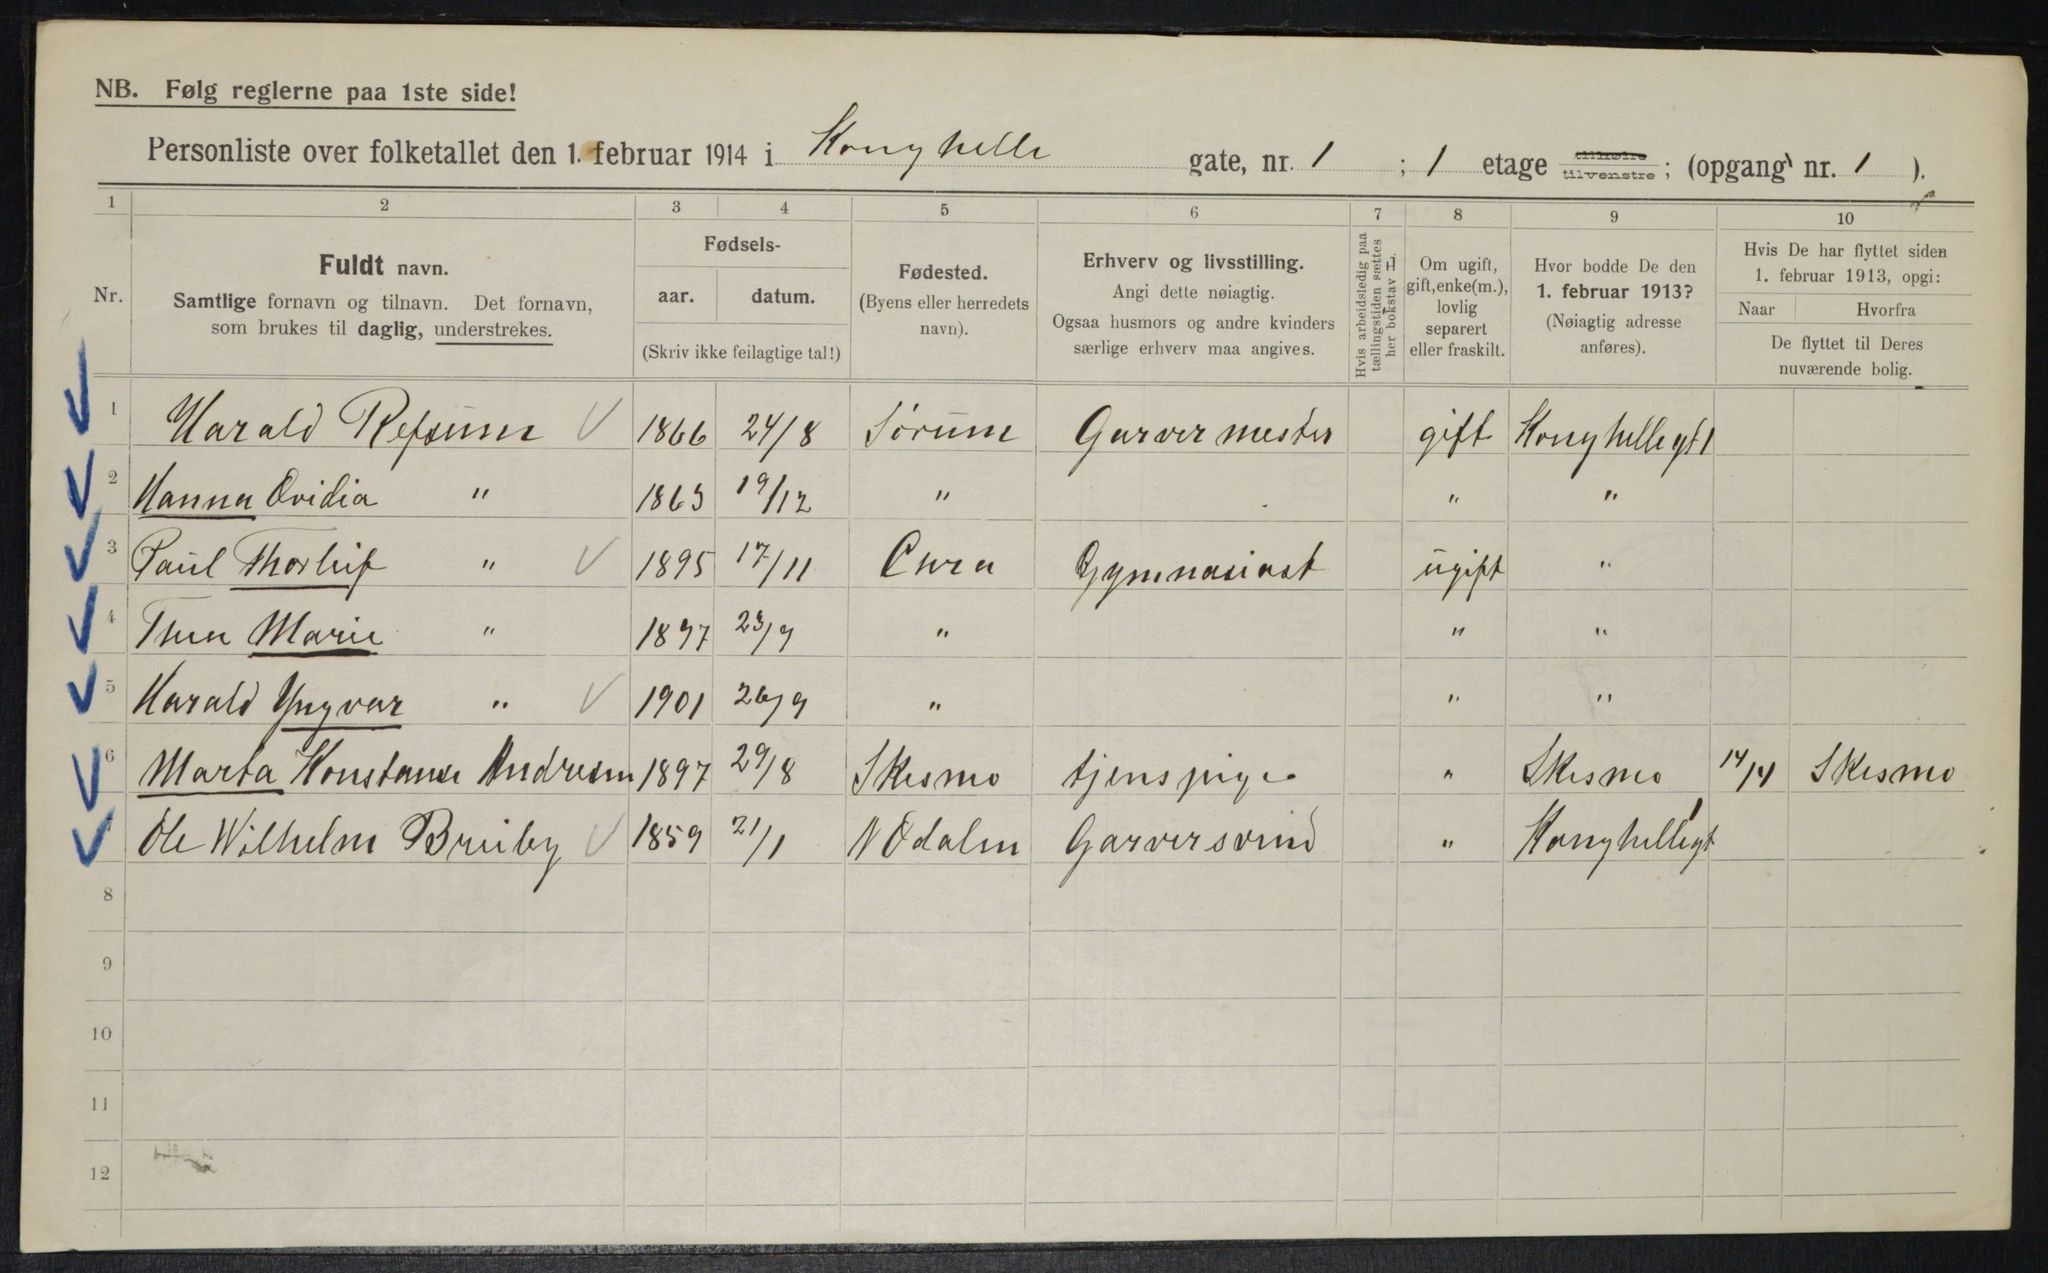 NB. Følg reglerne paa 1ste side!
Personliste over folketallet den 1. februar 1914 i Konghelle gate, nr. 1 ; 1 etage tilhøire tilvenstre ; (opgang nr. 1 ).
1 2 3 4 5 6 7 8 9 10
Nr.
Fuldt navn.
Samtlige fornavn og tilnavn. Det fornavn,
som brukes til daglig, understrekes.
Fødsels-
aar. datum.
(Skriv ikke feilagtige tal!)
Fødested.
(Byens eller herredets
navn).
Erhverv og livsstilling.
Angi dette nøiagtig.
Ogsaa husmors og andre kvinders
særlige erhverv maa angives.
Hvis arbeidsledig paa
tællingstiden sættes
her bokstav L.
Om ugift,
gift, enke(m.),
lovlig
separert
eller fraskilt.
Hvor bodde De den
1. februar 1913?
(Nøiagtig adresse
anføres).
Hvis De har flyttet siden
1. februar 1913, opgi:
Naar Hvorfra
De flyttet til Deres
nuværende bolig.
1 Harald Refsum 1866 24/8 Sørum Garvermester gift Konghellegt 1
2 Hanna Ovidia " 1863 19/12 " " "
3 Paul Thorleif " 1895 17/11 Gymnasiast ugift "
4 Thea Marie " 1897 23/9 " " "
5 Harald Yngvar " 1901 26/9 " " "
6 Marta Konstanse Andresen 1897 29/8 Skesmo tjenspige " Skesmo 14/4 Skesmo
Ole Wilhelm Bruby 1859 21/1 N Odalen Garversvend " Konghellegt 1
8
9
10
11
12